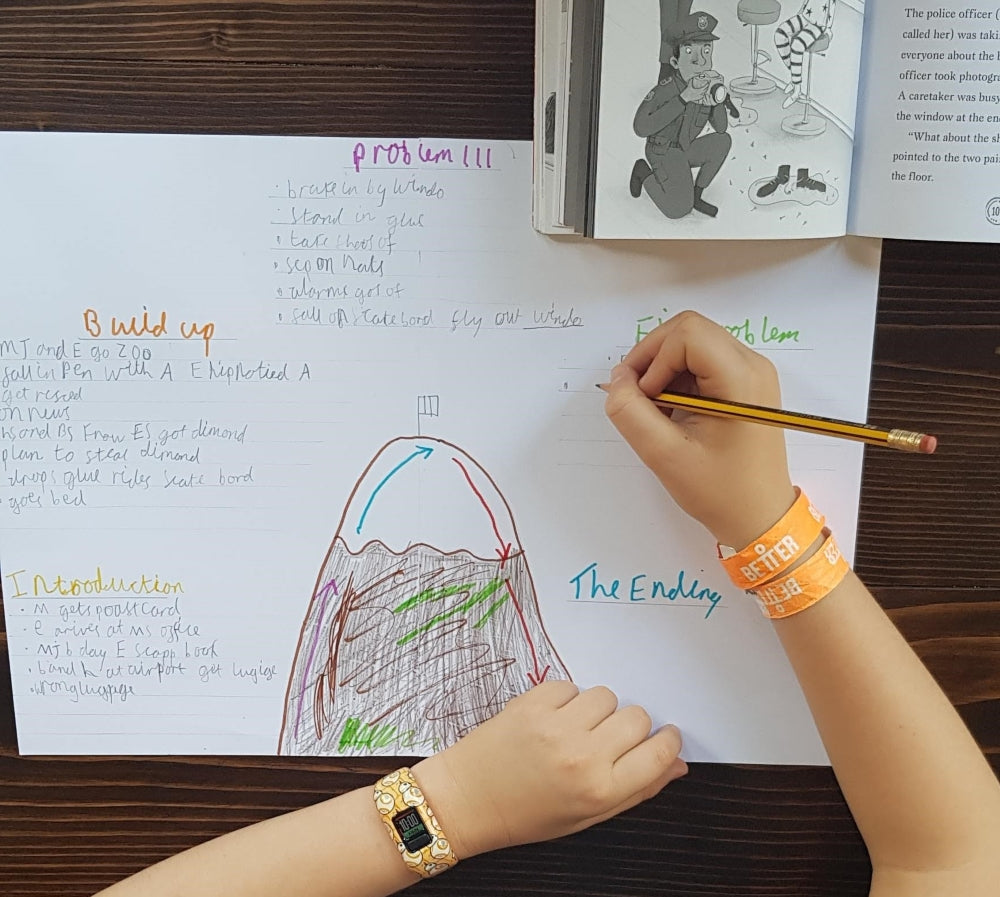 Problem !!!
• brake in by windo
• Stand in glus
• take shoos of
• sep on hats
• alarms gos of
• fall of scatebord fly out windo
Build up
MJ and E go Zoo
fall in Pen with A E hipnotied A
get resced
on news
and BS Know ES got dimond
plan to steal dimond
drops glue rides scate bord
goes bed
Introduction
• M gets poastcard
• e arives at ms office
• MJ b day E scapp book
• b and h at airport get lugige
• wrong luggage
Problem
The Ending
The police officer (
called her) was taki
everyone about the b
officer took photogra
A caretaker was busy
the window at the en
“What about the sh
pointed to the two pai
the floor.
10
BETTER
BETTER
10:00